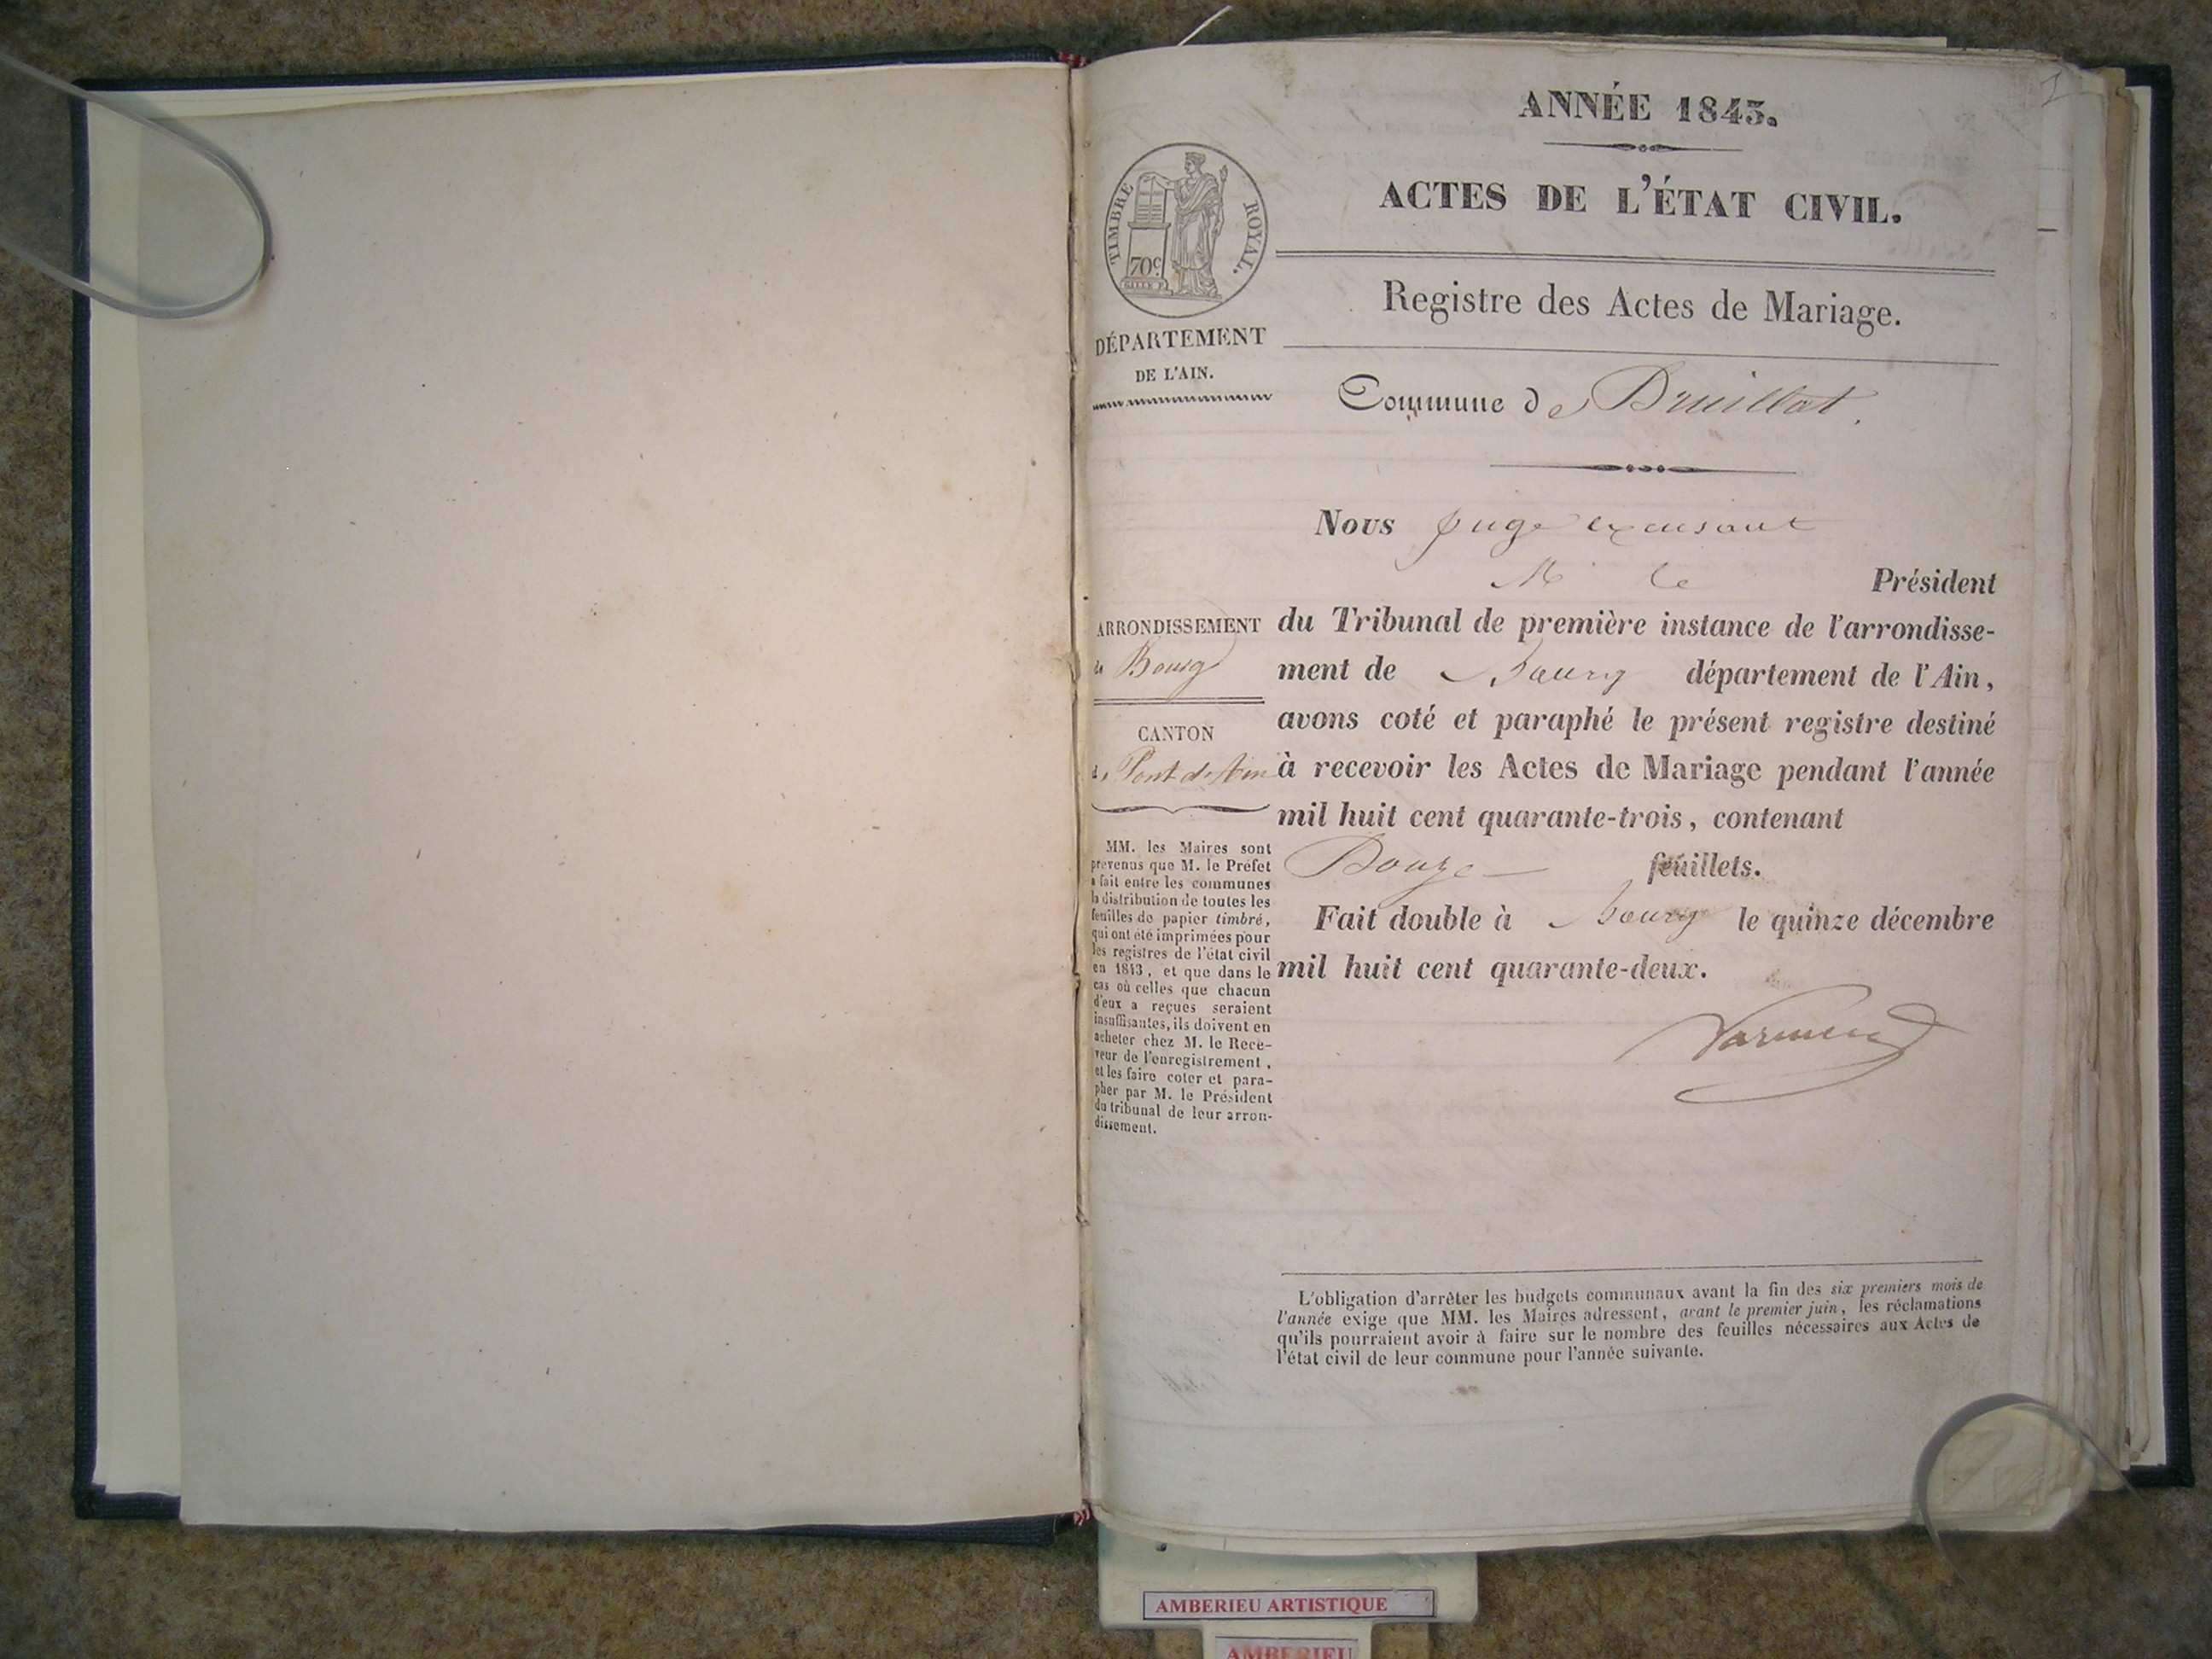 1
ANNÉE 1843.
ACTES DE L'ÉTAT CIVIL.
TIMBRE ROYAL.
70c
Registre des Actes de Mariage.
DÉPARTEMENT
DE L'AIN.
Commune de Druillat.
Nous juge
M le Président
ARRONDISSEMENT
de Bourg
CANTON
de Pont d'Ain
du Tribunal de première instance de l'arrondisse-
ment de Bourg département de l'Ain,
avons coté et paraphé le présent registre destiné
à recevoir les Actes de Mariage pendant l'année
mil huit cent quarante-trois, contenant
Douze feuillets.
Fait double à Bourg le quinze décembre
mil huit cent quarante-deux.
MM. les Maires sont
prévenus que M. le Préfet
a fait entre les communes
la distribution de toutes les
feuilles de papier timbré,
qui ont été imprimées pour
les registres de l'état civil
en 1843, et que dans le
cas où celles que chacun
d'eux a reçues seraient
insuffisantes, ils doivent en
acheter chez M. le Rece-
veur de l'enregistrement,
et les faire coter et para-
pher par M. le Président
du tribunal de leur arron-
dissement.
L'obligation d'arrêter les budgets communaux avant la fin des six premiers mois de
l'année exige que MM. les Maires adressent, avant le premier juin, les réclamations
qu'ils pourraient avoir à faire sur le nombre des feuilles nécessaires aux Actes de
l'état civil de leur commune pour l'année suivante.
AMBERIEU ARTISTIQUE
AMBERIEU